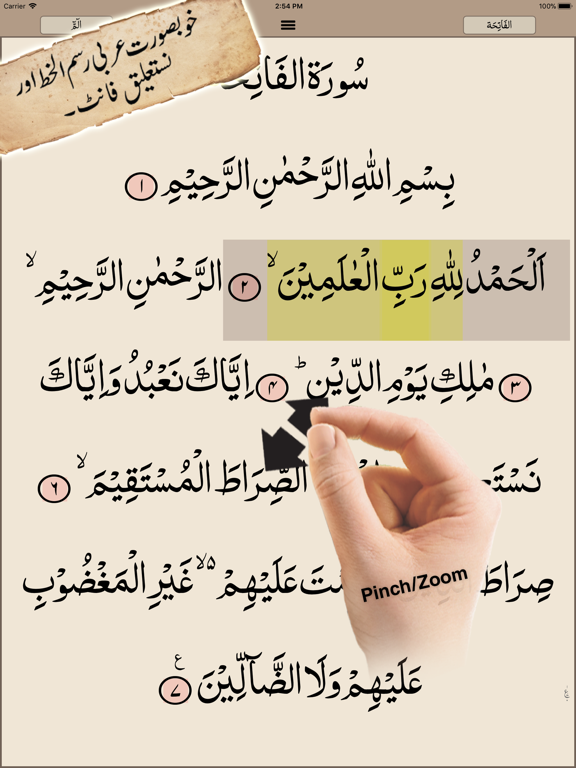 Carrier 2:54 PM 100%
الٓمّٓ الفَاتِحَة
خوبصورت عربی رسم الخط اور
نستعلیق فانٹ۔
سُورَة الفَاتِحَة
بِسْمِ اللّٰهِ الرَّحْمٰنِ الرَّحِيْمِ ۱
اَلْحَمْدُ لِلّٰهِ رَبِّ الْعٰلَمِيْنَ ۙ ۲ الرَّحْمٰنِ الرَّحِيْمِ ۙ
۳ مٰلِكِ يَوْمِ الدِّيْنِ ؕ ۴ اِيَّاكَ نَعْبُدُ وَاِيَّاكَ
نَسْتَعِ الصِّرَاطَ الْمُسْتَقِيْمَ ۙ ۶
صِرَاطَ مْتَ عَلَيْهِمْ ۵ۙ غَيْرِ الْمَغْضُوْبِ
Pinch/Zoom
عَلَيْهِمْ وَلَا الضَّآلِّيْنَ ع ۷